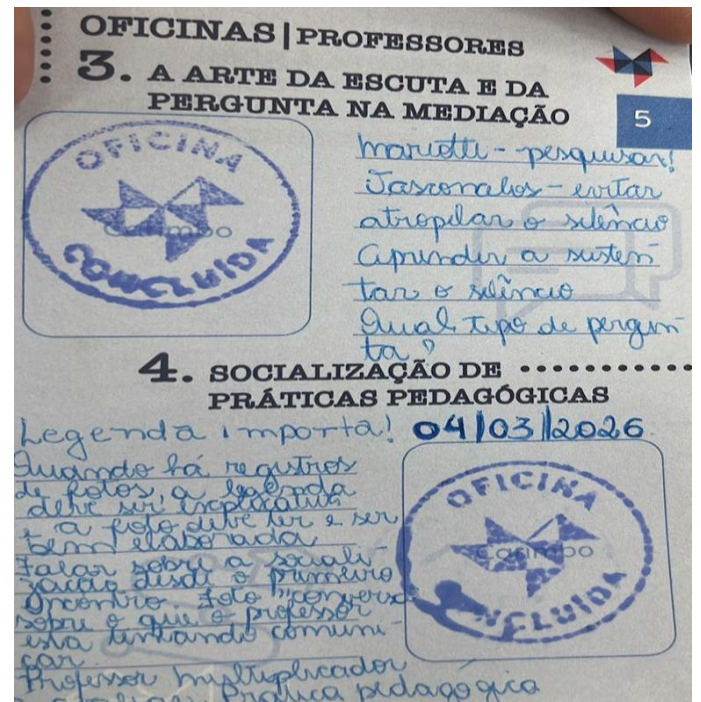 OFICINAS | PROFESSORES
3. A ARTE DA ESCUTA E DA
PERGUNTA NA MEDIAÇÃO
5
OFICINA
Carimbo
CONCLUÍDA
Mariotti - pesquisar!
- evitar
atropelar o silêncio
Aprender a susten
tar o silêncio
Qual tipo de pergun
ta?
4. SOCIALIZAÇÃO DE
PRÁTICAS PEDAGÓGICAS
Legenda importa! 04/03/2026
Quando há registros
de fotos, a legenda
deve ser explicativa
a foto deve ter e ser
bem elaborada
Falar sobre a sociali-
zação desde o primeiro
encontro. Foto "conversa
sobre o que o professor
está tentando comuni-
car.
OFICINA
Carimbo
CONCLUÍDA
Professor multiplicador
Prática pedagógica